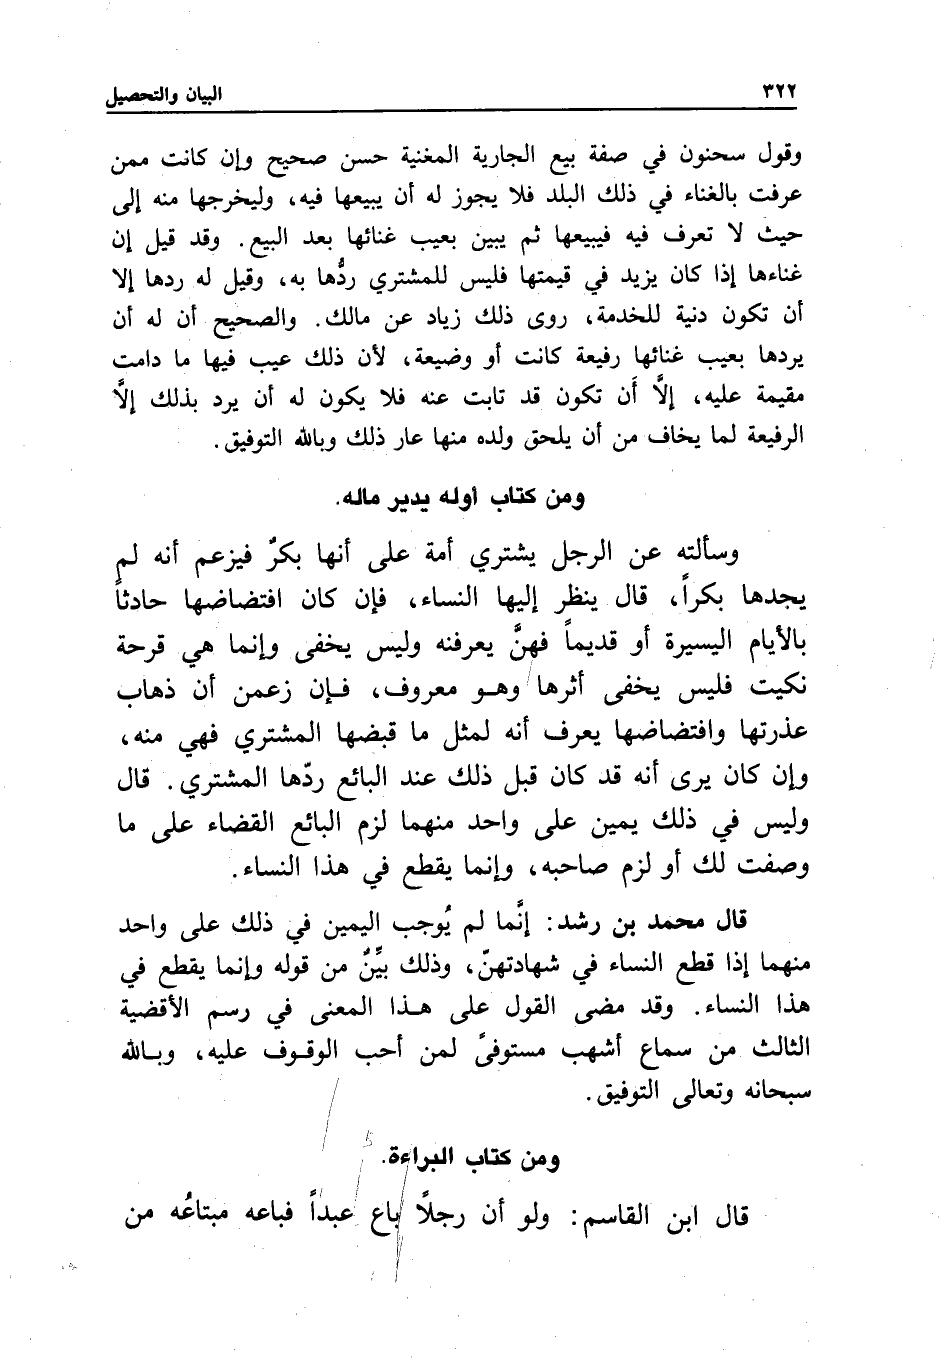 ٣٢٢
البيان والتحصيل
وقول سحنون في صفة بيع الجارية المغنية حسن صحيح وإن كانت ممن
عرفت بالغناء في ذلك البلد فلا يجوز له أن يبيعها فيه، وليخرجها منه إلى
حيث لا تعرف فيه فيبيعها ثم يبين بعيب غنائها بعد البيع. وقد قيل إن
غناءها إذا كان يزيد في قيمتها فليس للمشتري ردُّها به، وقيل له ردها إلا
أن تكون دنية للخدمة، روى ذلك زياد عن مالك. والصحيح أن له أن
يردها بعيب غنائها رفيعة كانت أو وضيعة، لأن ذلك عيب فيها ما دامت
مقيمة عليه، إلاَّ أَن تكون قد تابت عنه فلا يكون له أن يرد بذلك إلاَّ
الرفيعة لما يخاف من أن يلحق ولده منها عار ذلك وبالله التوفيق.
ومن كتاب أوله يدير ماله.
وسألته عن الرجل يشتري أمة على أنها بكرٌ فيزعم أنه لم
يجدها بكراً، قال ينظر إليها النساء، فإن كان افتضاضها حادثاً
بالأيام اليسيرة أو قديماً فهنَّ يعرفنه وليس يخفى وإنما هي قرحة
نكيت فليس يخفى أثرها وهو معروف، فإن زعمن أن ذهاب
عذرتها وافتضاضها يعرف أنه لمثل ما قبضها المشتري فهي منه،
وإن كان يرى أنه قد كان قبل ذلك عند البائع ردّها المشتري. قال
وليس في ذلك يمين على واحد منهما لزم البائع القضاء على ما
وصفت لك أو لزم صاحبه، وإنما يقطع في هذا النساء.
قال محمد بن رشد: إنَّما لم يُوجب اليمين في ذلك على واحد
منهما إذا قطع النساء في شهادتهنّ، وذلك بيِّنٌ من قوله وإنما يقطع في
هذا النساء. وقد مضى القول على هذا المعنى في رسم الأقضية
الثالث من سماع أشهب مستوفىً لمن أحب الوقوف عليه، وبالله
سبحانه وتعالى التوفيق.
ومن كتاب البراءة.
قال ابن القاسم: ولو أن رجلًا باع عبداً فباعه مبتاعُه من